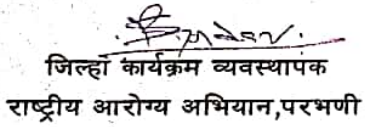 जिल्हा कार्यक्रम व्यवस्थापक
राष्ट्रीय आरोग्य अभियान,परभणी